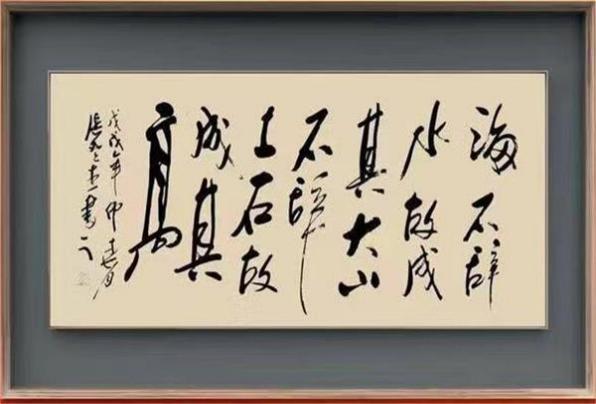 海不辞
水故成
其大山
不辞
土石故
成其
高
戊戌年仲春月
书